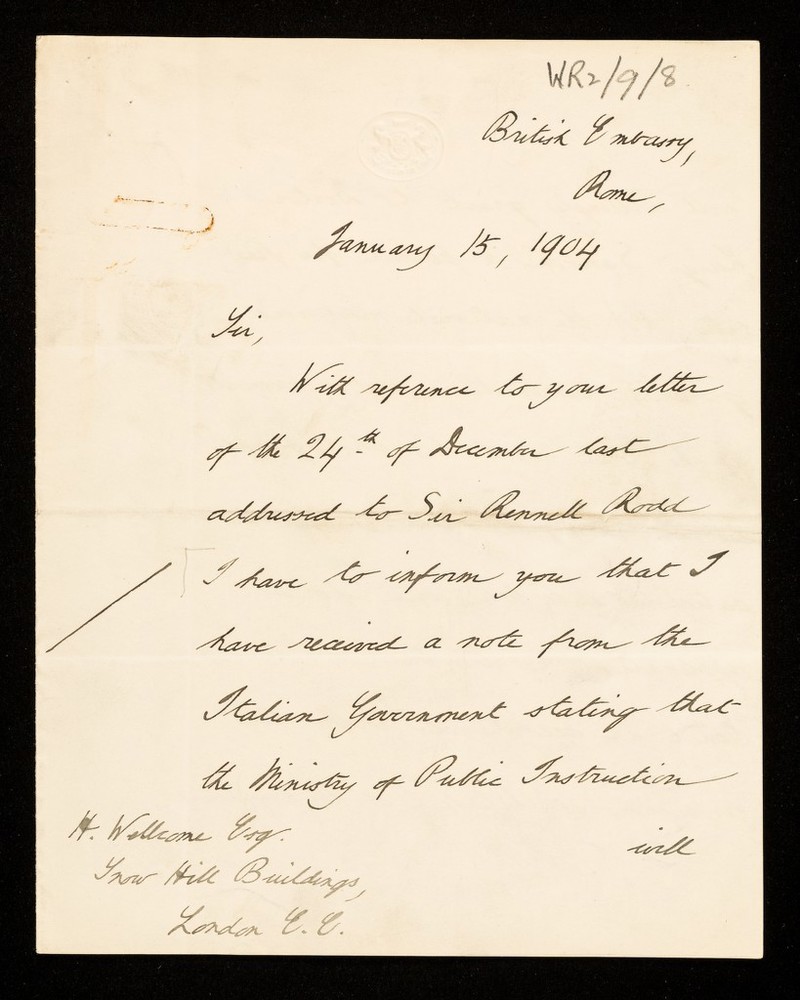 WR2/9/8
British Embassy,
Rome,
January 15, 1904
Sir,
With reference to your letter
of the 24th of December last
addressed to Sir Rennell Rodd
I have to inform you that I
have received a note from the
Italian Government stating that
the Ministry of Public Instruction
will
H. Wellcome Esq.
Snow Hill Buildings,
London E.C.